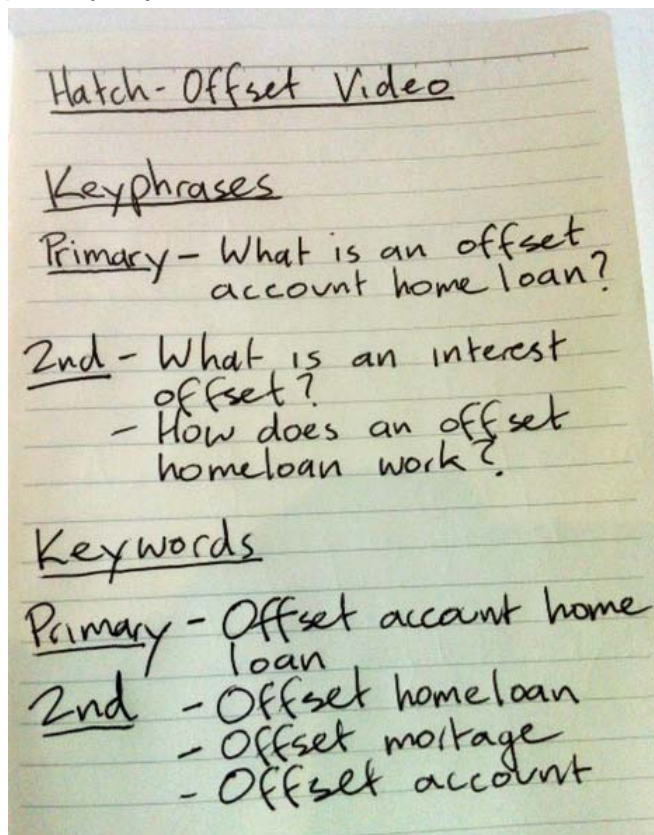 Hatch - Offset Video
Keyphrases
Primary - What is an offset
account home loan?
2nd - What is an interest
offset?
- How does an offset
homeloan work?
Keywords
Primary - Offset account home
loan
2nd - Offset homeloan
- Offset mortage
- Offset account